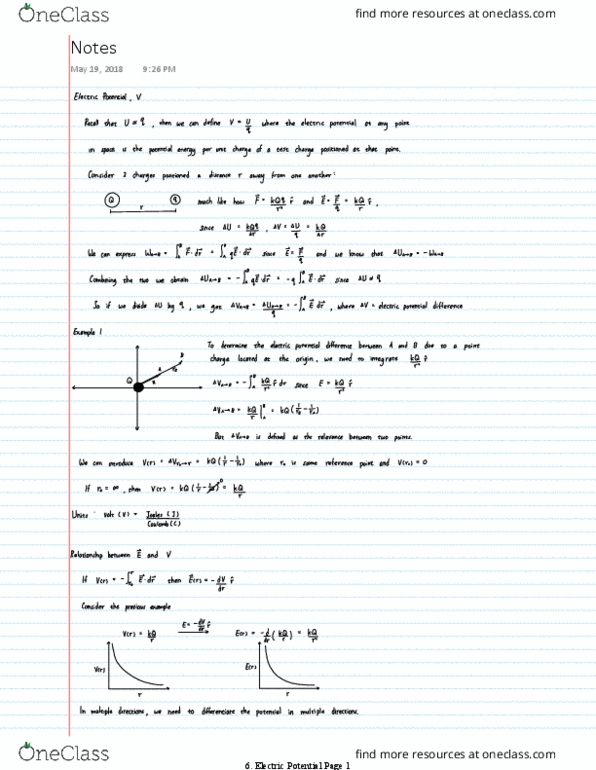 OneClass
find more resources at oneclass.com
Notes
May 19, 2018 9:26 PM
Electric Potential, V
Recall that U ∝ q, then we can define V = U/q where the electric potential at any point
in space is the potential energy per unit charge of a test charge positioned at that point.
Consider 2 charges positioned a distance r away from one another:
Q q r much like how F⃗ = kQq/r² r̂ and E⃗ = F⃗/q = kQ/r² r̂,
since ΔU = kQq/Δr, ΔV = ΔU/q = kQ/Δr
We can express W_A→B = ∫_A^B F⃗·dr⃗ = ∫_A^B qE⃗·dr⃗ since E⃗ = F⃗/q and we know that ΔU_A→B = -W_A→B
Combining the two we obtain ΔU_A→B = -∫_A^B qE⃗·dr⃗ = -q∫_A^B E⃗·dr⃗ since ΔU ∝ q
So if we divide ΔU by q, we get ΔV_A→B = ΔU_A→B/q = -∫_A^B E⃗·dr⃗, where ΔV = electric potential difference
Example 1
To determine the electric potential difference between A and B due to a point
charge located at the origin, we need to integrate kQ/r² r̂
Q A B
ΔV_A→B = -∫_A^B kQ/r² r̂ dr since E = kQ/r² r̂
ΔV_A→B = kQ/r |_A^B = kQ(1/r_B - 1/r_A)
But ΔV_A→B is defined as the reference between two points.
We can introduce V(r) = ΔV_r₀→r = kQ(1/r - 1/r₀) where r₀ is some reference point and V(r₀) = 0
If r₀ = ∞, then V(r) = kQ(1/r - 1/r₀) = kQ/r
Units: Volt (V) = Joules (J)/Coulomb (C)
Relationship between E⃗ and V
If V(r) = -∫ E⃗·dr⃗ then E⃗(r) = -dV/dr r̂
Consider the previous example
V(r) = kQ/r E = -dV/dr r̂ E(r) = -d/dr (kQ/r) = kQ/r²
V(r) r E(r) r
In multiple directions, we need to differentiate the potential in multiple directions.
OneClass
find more resources at oneclass.com
6. Electric Potential Page 1